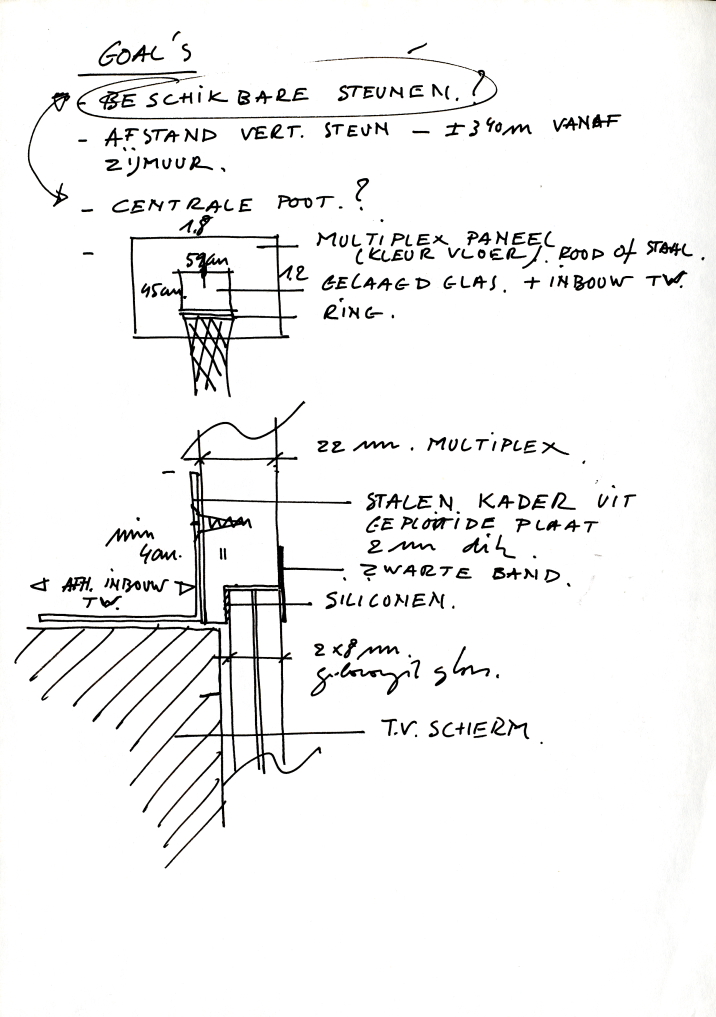 GOAL'S
- BESCHIKBARE STEUNEN.?
- AFSTAND VERT. STEUN - ± 340m VANAF
ZIJMUUR.
- CENTRALE POOT.?
1.8
- MULTIPLEX PANEEL
(KLEUR VLOER). ROOD of STAAL.
59cm
1.2
45cm
GELAAGD GLAS. + INBOUW TV.
RING.
22 mm. MULTIPLEX.
STALEN KADER UIT
GEPLOOIDE PLAAT
2 mm dik.
min
4cm.
ZWARTE BAND.
AFH. INBOUW
TV.
SILICONEN.
2x8 mm.
gelaagd glas.
T.V. SCHERM.